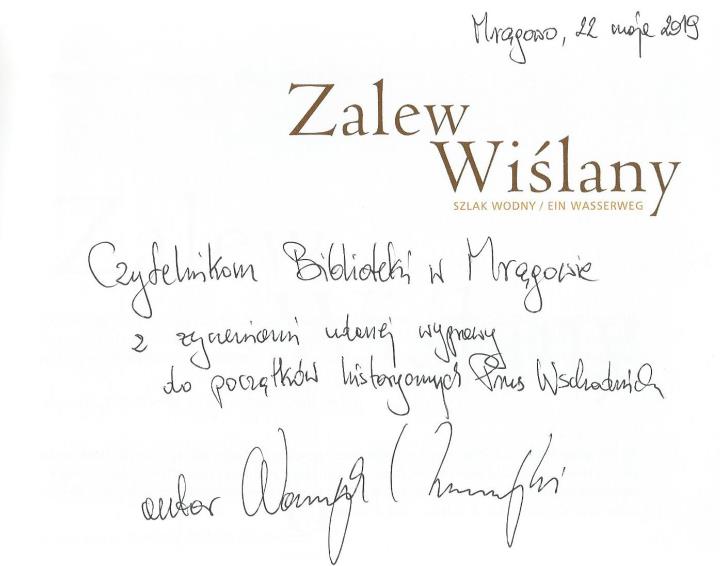 Mrągowo, 22 maja 2019
Zalew
Wiślany
SZLAK WODNY / EIN WASSERWEG
Czytelnikom Biblioteki w Mrągowie
z życzeniami udanej wyprawy
do początków historycznych Prus Wschodnich
autor